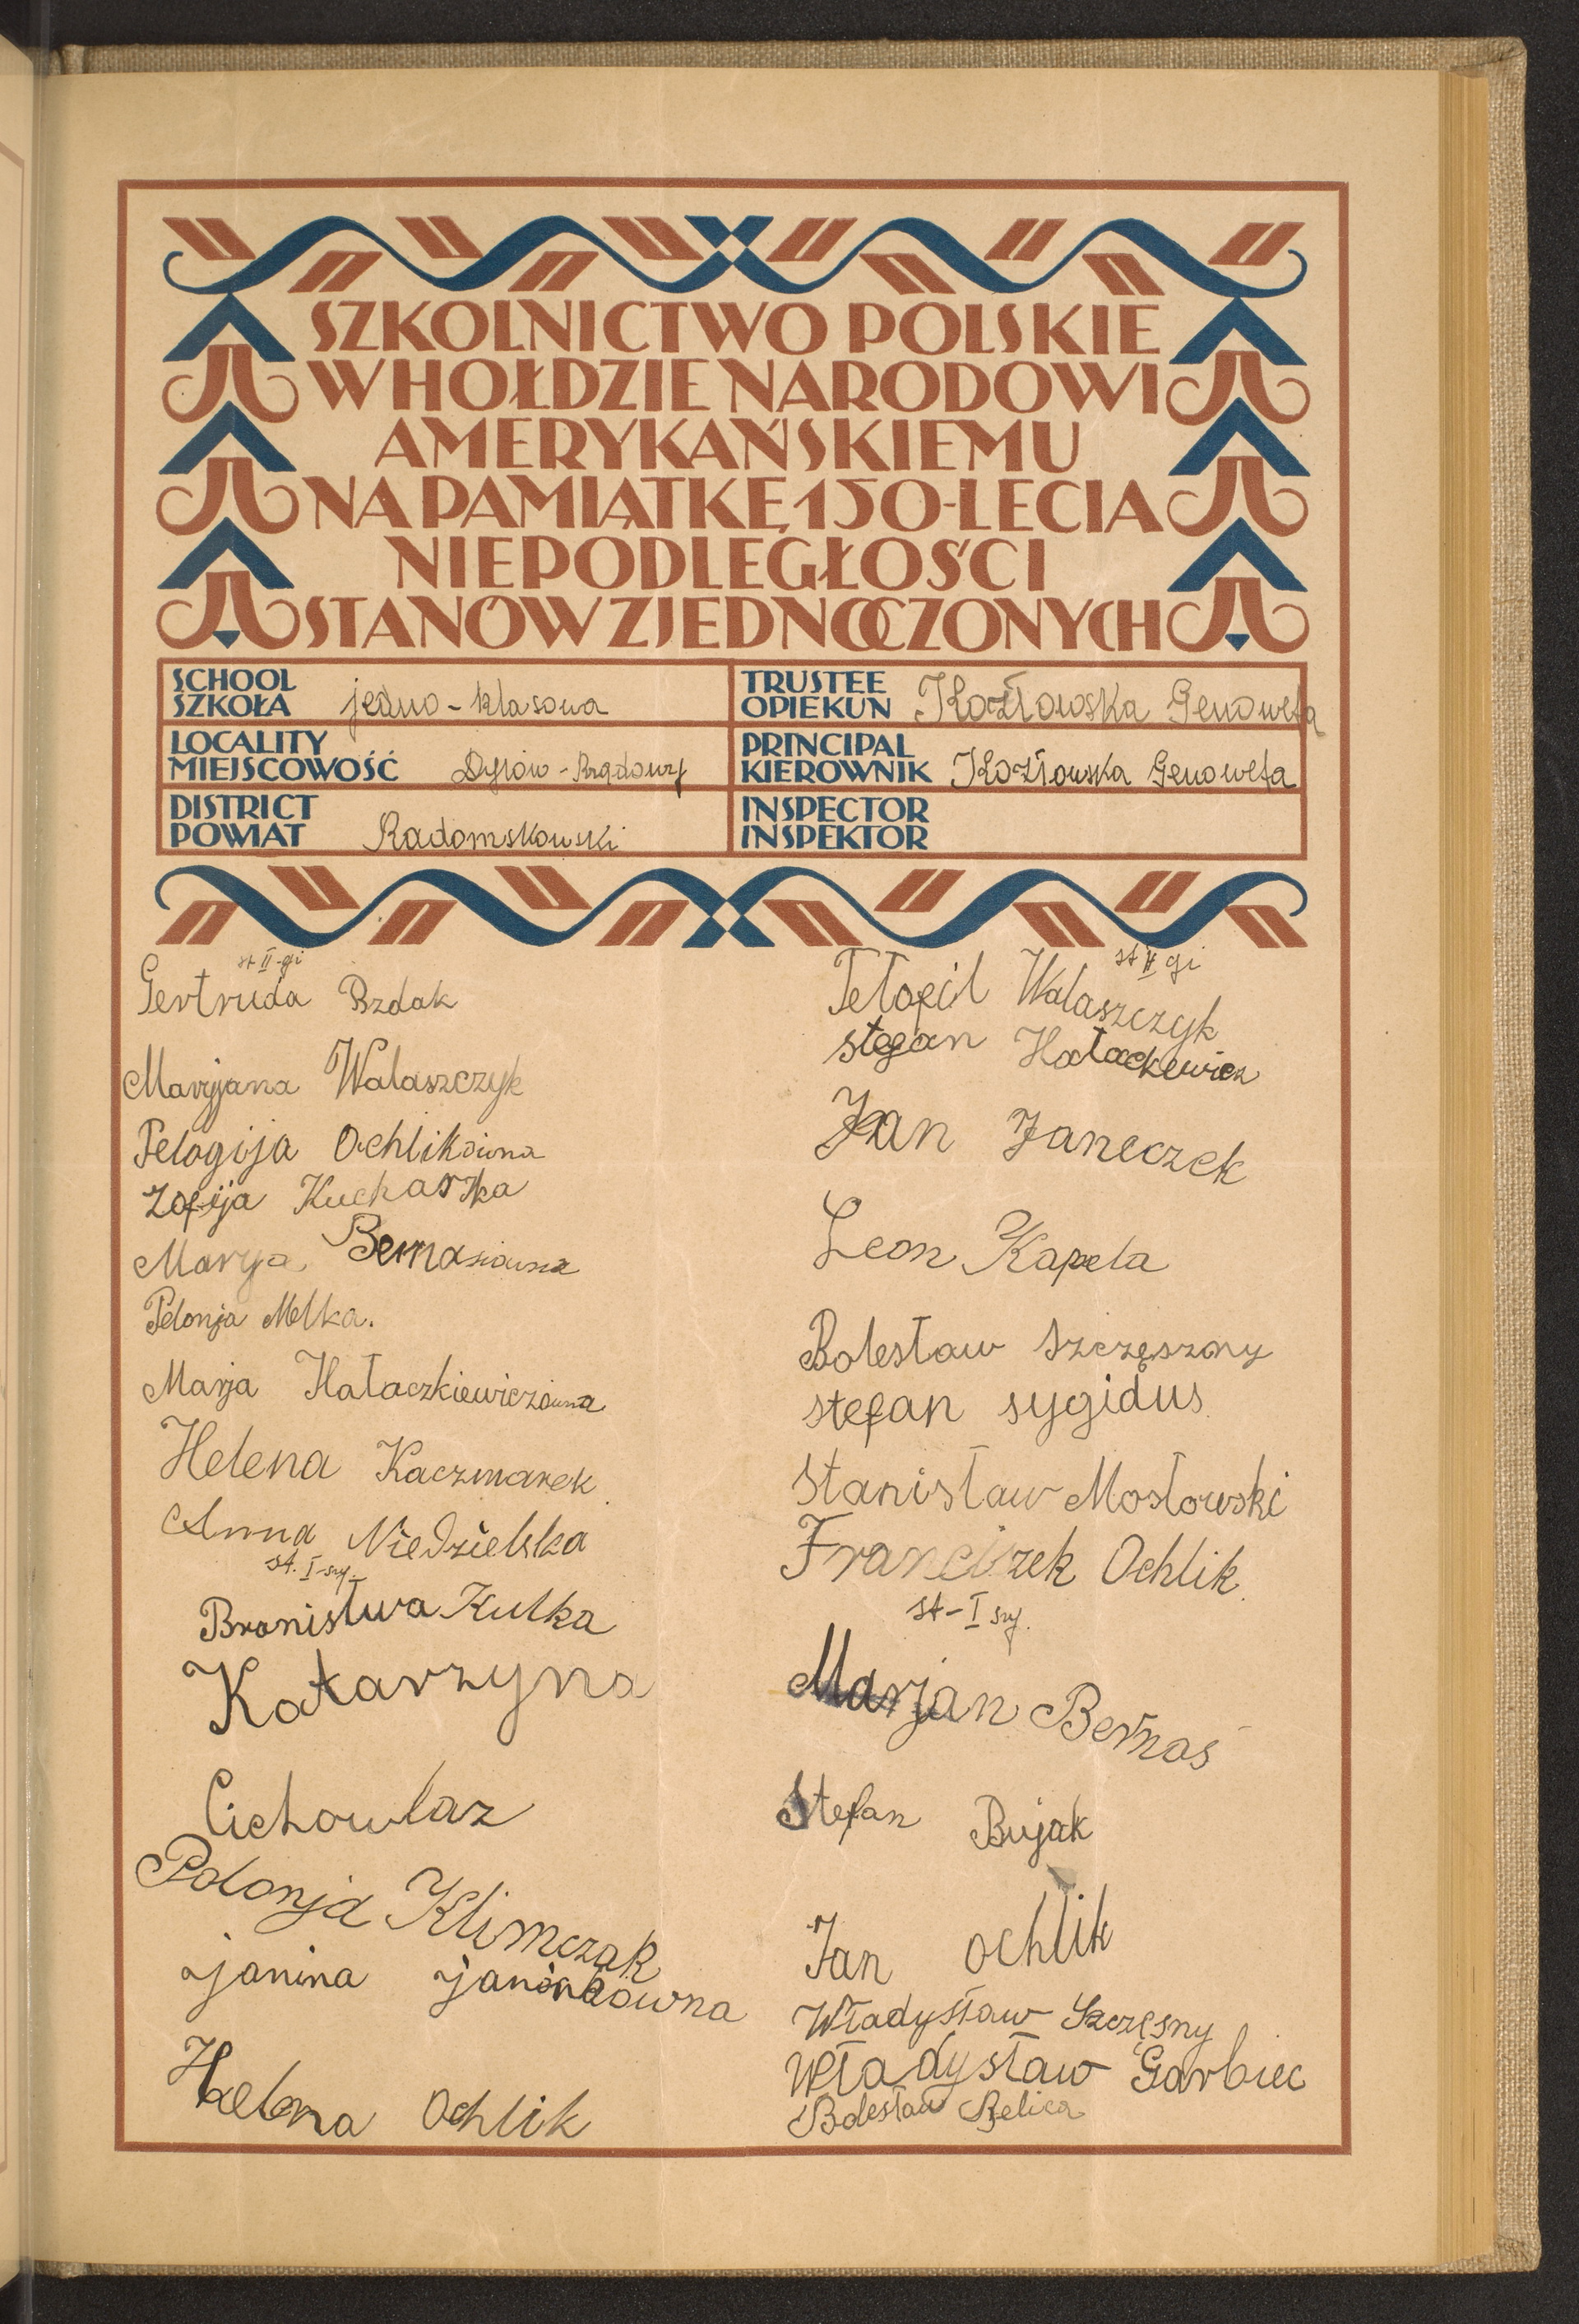 SZKOLNICTWO POLSKIE
W HOŁDZIE NARODOWI
AMERYKAŃSKIEMU
NA PAMIĄTKĘ 150-LECIA
NIEPODLEGŁOŚCI
STANÓW ZJEDNOCZONYCH
SCHOOL
SZKOŁA jedno-klasowa
LOCALITY
MIEJSCOWOŚĆ Dylów-Rządowy
DISTRICT
POWIAT Radomskowski
TRUSTEE
OPIEKUN Kozłowska Genowefa
PRINCIPAL
KIEROWNIK Kozłowska Genowefa
INSPECTOR
INSPEKTOR
st II-gi
Gertruda Bzdak
Maryjana Walaszczyk
Pelagija Ochlikówna
Zofija Kucharska
Marya Bernasiówna
Pelonja Melka.
Marja Hałaczkiewiczówna
Helena Kaczmarek
Anna Niedzielska
st. I-szy.
Bronistwa Kulka
Katarzyna
Cichowlaz
Polonja Klimczak
Janina Janikówna
Helena Ochlik
st II gi
Tefofil Walaszczyk
stefan Hałackewicz
Jan Janeczek
Leon Kapela
Bolesław Szczęszny
stefan sygidus
Stanisław Mosłowski
Franciszek Ochlik
st-I szy.
Marjan Bernaś
Stefan Bujak
Jan ochlik
Władysław Szczęsny
Władysław Garbiec
Bolesław Belica